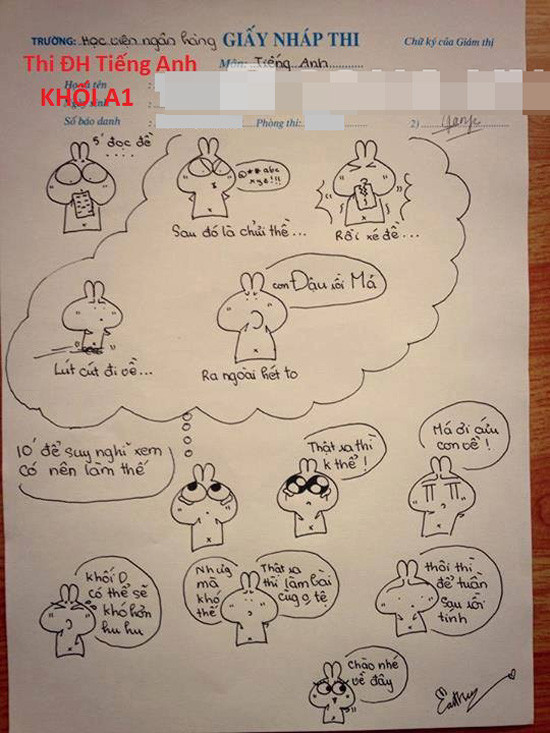 TRƯỜNG: Học viện ngân hàng GIẤY NHÁP THI Chữ ký của Giám thị
Thi ĐH Tiếng Anh
Môn: Tiếng Anh
Họ và tên :
KHỐI A1
Số báo danh : Phòng thi: 2)
5' đọc đề
....
@**abc
xyz!!!
Sau đó là chửi thề...
Rồi xé đề...
con Đậu rồi Má
Lút cút đi về...
Ra ngoài hét to
10' để suy nghĩ xem
có nên làm thế
Thật ra thì
k thể!
Má ơi cứu
con về!
khối D
có thể sẽ
khó hơn
hu hu
Nhưg
mà
khó
thế
Thật ra
thì làm bài
cũg o tệ
thôi thì
để tuần
sau rồi
tính
Chào nhé
về đây